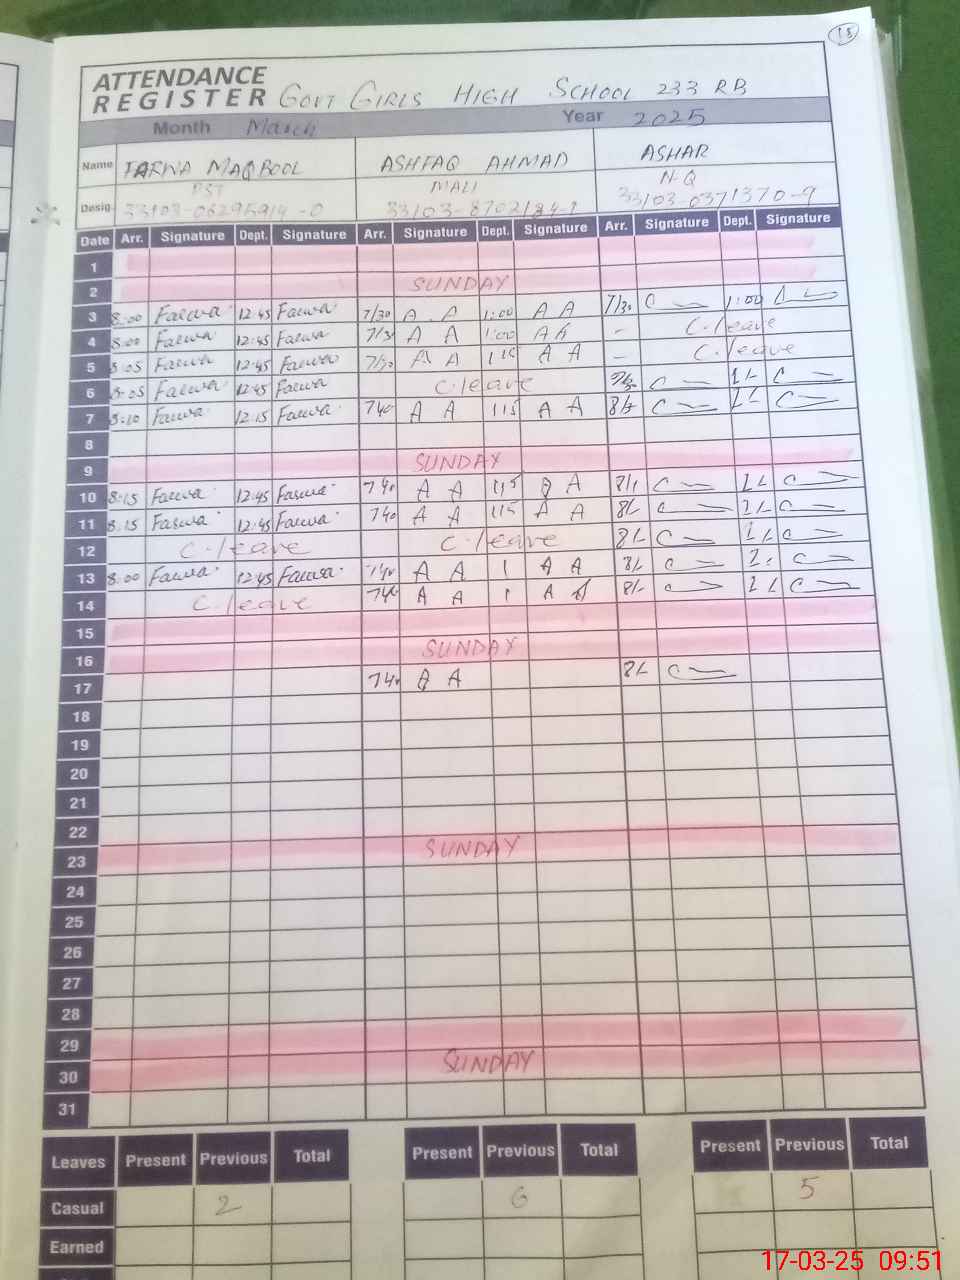 18
ATTENDANCE
REGISTER GOVT GIRLS HIGH SCHOOL 233 RB
Month March Year 2025
Name FARWA MAQBOOL ASHFAQ AHMAD ASHAR
PST MALI N-Q
Desig. 33103-06295914-0 33103-8702184-1 33103-0371370-9
Date Arr. Signature Dept. Signature Arr. Signature Dept. Signature Arr. Signature Dept. Signature
1
2 SUNDAY
3 8:00 Farwa 12:45 Farwa 7/30 A A 1:00 A A 7/30 1:00
4 8:00 Farwa 12:45 Farwa 7/30 A A 1:00 A A - C.leave
5 8:05 Farwa 12:45 Farwa 7/30 A A 115 A A - C.leave
6 8:05 Farwa 12:45 Farwa C.leave 1/-
7 8:10 Farwa 12:15 Farwa 740 A A 115 A A 8/- 1/-
8
9 SUNDAY
10 8:15 Farwa 12:45 Farwa 740 A A 115 A A 8/- 1/-
11 8:15 Farwa 12:45 Farwa 740 A A 115 A A 8/- 1/-
12 C.leave C.leave 8/- 1/-
13 8:00 Farwa 12:45 Farwa 740 A A 1 A A 8/-
14 C.leave 740 A A 1 A A 8/- 1/-
15
16 SUNDAY
17 740 A A 8/-
18
19
20
21
22
23 SUNDAY
24
25
26
27
28
29
30 SUNDAY
31
Leaves Present Previous Total Present Previous Total Present Previous Total
Casual 2 6 5
Earned
17-03-25 09:51